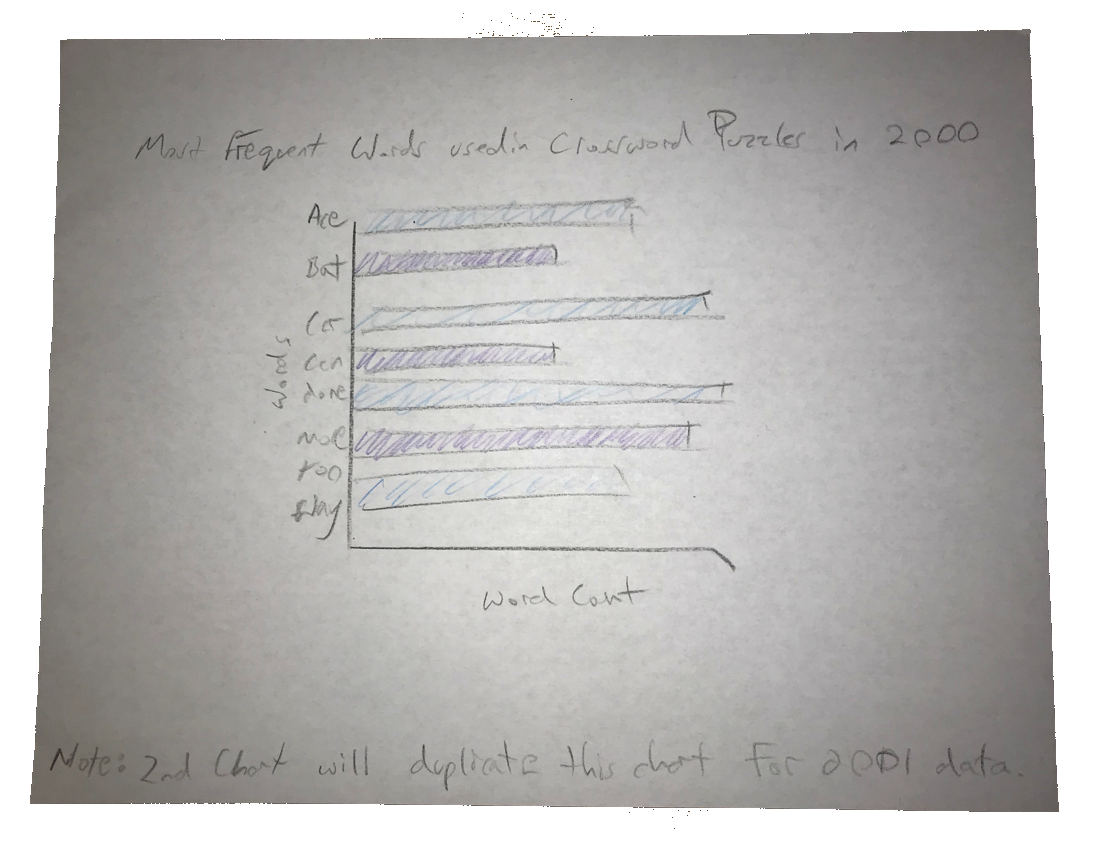 Most Frequent Words used in Crossword Puzzles in 2000
Ace
Bat
Words
Can
done
too
stay
Word Count
Note: 2nd Chart will duplicate this chart for 2001 data.